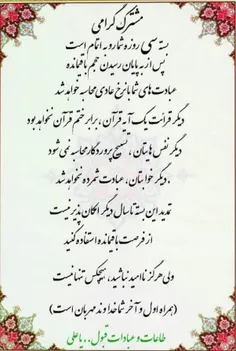 مشترک گرامی
بسته سی روزه شما رو به اتمام است
پس از به پایان رسیدن حجم باقیمانده
عبادت های شما با نرخ عادی محاسبه خواهد شد
دیگر قرائت یک آیه قرآن ، برابر ختم قرآن نخواهد بود
دیگر نفس هایتان ، تسبیح پروردگار محاسبه نمی شود
دیگر خوابتان ، عبادت شمرده نخواهد شد .
تمدید این بسته تا سال دیگر امکان پذیر نیست
از فرصت باقیمانده استفاده کنید
ولی هرگز ناامید نباشید ، هیچکس تنها نیست
(همراه اول و آخر شما خداوند مهربان است)
طاعات و عبادات قبول . . یا علی